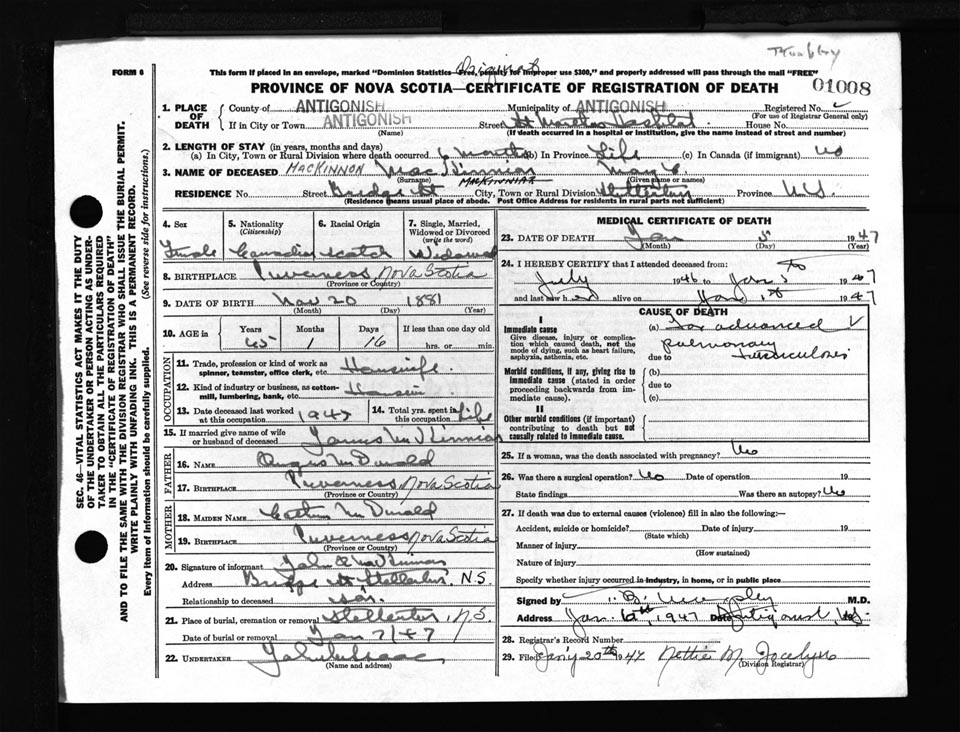 FORM 6
This form if placed in an envelope, marked "Dominion Statistics—Free, penalty for improper use $300," and properly addressed will pass through the mail "FREE"
Original
PROVINCE OF NOVA SCOTIA—CERTIFICATE OF REGISTRATION OF DEATH
01008
1. PLACE OF DEATH
County of ANTIGONISH Municipality of ANTIGONISH Registered No.
(For use of Registrar General only)
If in City or Town ANTIGONISH Street St Marthas Hospital House No.
(Name) (If death occurred in a hospital or institution, give the name instead of street and number)
2. LENGTH OF STAY (in years, months and days)
(a) In City, Town or Rural Division where death occurred 6 months (b) In Province Life (c) In Canada (if immigrant) no
3. NAME OF DECEASED MACKINNON MacKinnon Mary
(Surname) MACKINNON (Given name or names)
RESIDENCE No. Street Bridge St City, Town or Rural Division Stellarton Province N.S.
(Residence means usual place of abode. Post Office Address for residents in rural parts not sufficient)
4. Sex 5. Nationality (Citizenship) 6. Racial Origin 7. Single, Married, Widowed or Divorced (write the word)
Female Canadian Scotch Widowed
8. BIRTHPLACE Inverness, Nova Scotia
(Province or Country)
9. DATE OF BIRTH Nov 20 1881
(Month) (Day) (Year)
10. AGE in Years Months Days If less than one day old
65 1 16 hrs. or min.
OCCUPATION
11. Trade, profession or kind of work as spinner, teamster, office clerk, etc. Housewife
12. Kind of industry or business, as cotton-mill, lumbering, bank, etc.
13. Date deceased last worked at this occupation 1947 14. Total yrs. spent in Life
15. If married give name of wife or husband of deceased James McKinnon
FATHER
16. NAME Angus McDonald
17. BIRTHPLACE Inverness Nova Scotia
(Province or Country)
MOTHER
18. MAIDEN NAME McDonald
19. BIRTHPLACE Inverness Nova Scotia
(Province or Country)
20. Signature of informant John MacKinnon
Address Bridge St Stellarton, N.S.
Relationship to deceased son
21. Place of burial, cremation or removal Stellarton, N.S.
Date of burial or removal Jan 7/47
22. UNDERTAKER John
(Name and address)
MEDICAL CERTIFICATE OF DEATH
23. DATE OF DEATH Jan 5 1947
(Month) (Day) (Year)
24. I HEREBY CERTIFY that I attended deceased from: to
July 1946 to Jan 5 1947
and last saw her alive on Jan 1st 1947
CAUSE OF DEATH
I
Immediate cause
Give disease, injury or complication which caused death, not the mode of dying, such as heart failure, asphyxia, asthenia, etc.
(a) Far advanced
pulmonary
due to tuberculosis
Morbid conditions, if any, giving rise to immediate cause (stated in order proceeding backwards from immediate cause).
(b)
due to
(c)
II
Other morbid conditions (if important) contributing to death but not causally related to immediate cause.
25. If a woman, was the death associated with pregnancy? No
26. Was there a surgical operation? No Date of operation 19
State findings Was there an autopsy? No
27. If death was due to external causes (violence) fill in also the following:—
Accident, suicide or homicide? Date of injury 19
(State which)
Manner of injury
(How sustained)
Nature of injury
Specify whether injury occurred in industry, in home, or in public place
Signed by M.D.
Address Jan. 6th, 1947 Date Antigonish, N.S.
28. Registrar's Record Number
29. Filed Jan'y 20th 1947 Nettie M. Jocelyn
(Division Registrar)
SEC. 46—VITAL STATISTICS ACT MAKES IT THE DUTY
OF THE UNDERTAKER OR PERSON ACTING AS UNDER-
TAKER TO OBTAIN ALL THE PARTICULARS REQUIRED
IN THE "CERTIFICATE OF REGISTRATION OF DEATH"
AND TO FILE THE SAME WITH THE DIVISION REGISTRAR WHO SHALL ISSUE THE BURIAL PERMIT.
WRITE PLAINLY WITH UNFADING INK. THIS IS A PERMANENT RECORD.
Every item of Information should be carefully supplied. (See reverse side for instructions.)